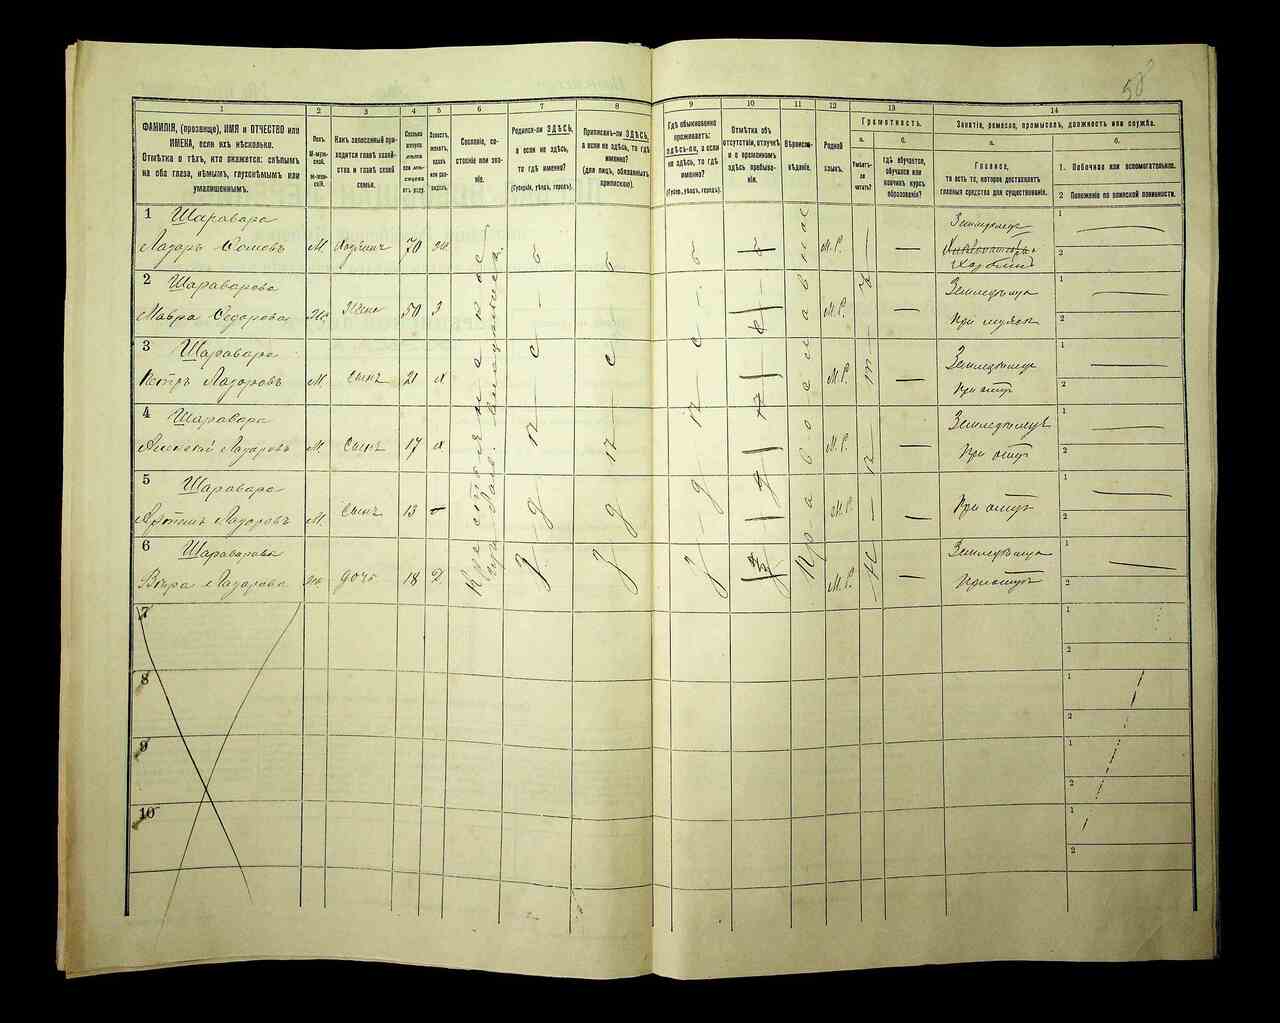 58
1
2
3
4
5
6
7
8
9
10
11
12
13
14
ФАМИЛІЯ, (прозвище), ИМЯ и ОТЧЕСТВО или
ИМЕНА, если ихъ нѣсколько.
Отмѣтка о тѣхъ, кто окажется: слѣпымъ
на оба глаза, нѣмымъ, глухонѣмымъ или
умалишеннымъ.
Полъ.
М-муж-
ской.
Ж-жен-
скій.
Какъ записанный при-
ходится главѣ хозяй-
ства и главѣ своей
семьи.
Сколько
минуло
лѣтъ
или мѣ-
сяцевъ
отъ роду.
Холостъ,
женатъ,
вдовъ
или раз-
веденъ.
Сословіе, со-
стояніе или зва-
ніе.
Родился-ли ЗДѢСЬ,
а если не здѣсь,
то гдѣ именно?
(Губернія, уѣздъ, городъ).
Приписанъ-ли ЗДѢСЬ,
а если не здѣсь, то гдѣ
именно?
(для лицъ, обязанныхъ
припискою).
Гдѣ обыкновенно
проживаетъ:
здѣсь-ли, а если
не здѣсь, то гдѣ
именно?
(Губер., уѣздъ, городъ).
Отмѣтка объ
отсутствіи, отлучкѣ
и о временномъ
здѣсь пребыва-
ніи.
Вѣроиспо-
вѣданіе.
Родной
языкъ.
Грамотность.
а.
Умѣетъ-
ли
читать?
б.
Гдѣ обучается,
обучался или
кончилъ курсъ
образованія?
Занятіе, ремесло, промыселъ, должность или служба.
а.
Главное,
то есть то, которое доставляетъ
главныя средства для существованія.
б.
1. Побочное или вспомогательное.
2 Положеніе по воинской повинности.
1 Шаравара
Лазарь Семовъ М Хозяинъ 70 ж М.Р. —
Земледѣлецъ
1
2
2 Шараварова
Мавра Седорова Ж. Жена 50 3 М.Р. —
Земледѣлица
При мужѣ
1
2
3 Шаравара
Петръ Лазоровъ М. Сынъ 21 х М.Р. —
Земледѣлецъ
При отцѣ
1
2
4 Шаравара
Алексѣй Лазоровъ М. Сынъ 17 х М.Р. —
Земледѣлецъ
При отцѣ
1
2
5 Шаравара
Лазоровъ М. Сынъ 13 — М.Р. —
При отцѣ
1
2
6 Шараварова
Вѣра Лазарова Ж дочь 18 Д М.Р. —
Земледѣлица
При отцѣ
1
2
Крестьянъ
Здѣсь
Здѣсь
Здѣсь
Православное
Нѣтъ
7
1
2
8
1
2
9
1
2
10
1
2